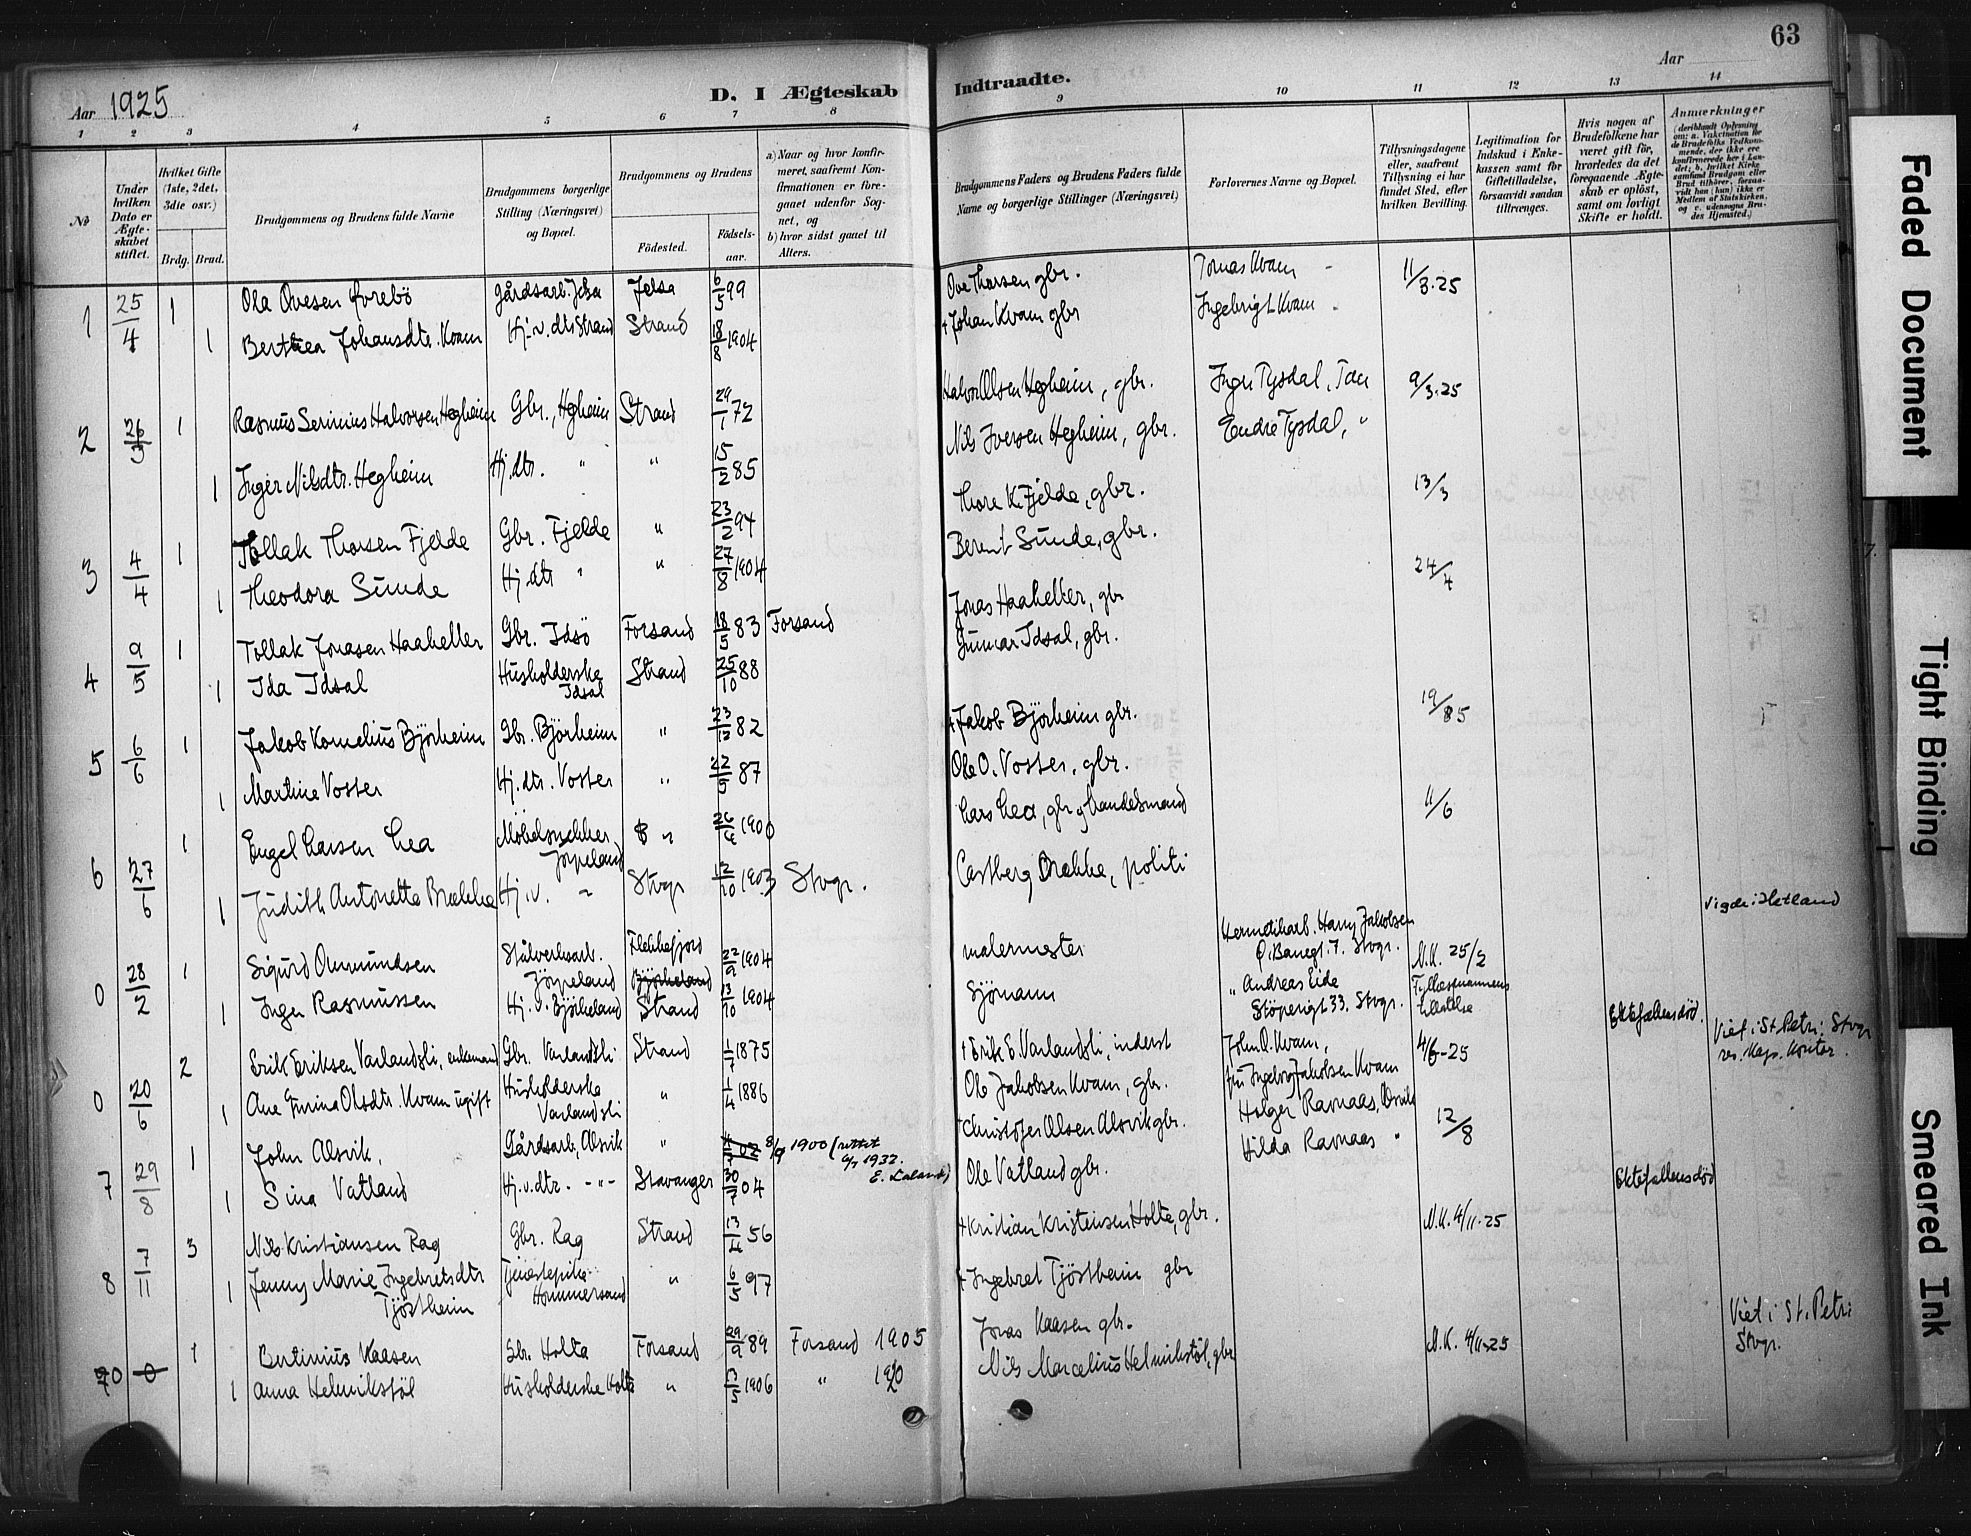 63
Aar 1925
D. I Ægteskab Indtraadte.
Aar
1 2 3 4 5 6 7 8 9 10 11 12 13 14
No
Under hvilken Dato er Ægteskabet stiftet.
Hvilket Gifte (1ste, 2det, 3die osv.)
Brdg. Brud.
Brudgommens og Brudens fulde Navne
Brudgommens borgerlige Stilling (Næringsvei) og Bopæl.
Brudgommens og Brudens
Födested.
Födselsaar.
a) Naar og hvor konfirmeret, saafremt Konfirmationen er foregaaet udenfor Sognet, og
b) hvor sidst gaaet til Alters.
Brudgommens Faders og Brudens Faders fulde Navne og borgerlige Stillinger (Næringsvei)
Forlovernes Navne og Bopæl.
Tillysningsdagene eller, saafremt Tillysning ei har fundet Sted, efter hvilken Bevilling.
Legitimation for Indskud i Enkekassen samt for Giftetilladelse, forsaavidt saadan tiltrænges.
Hvis nogen af Brudefolkene har været gift før, hvorledes da det foregaaende Ægteskab er oplöst, samt om lovligt Skifte er holdt.
Anmærkninger
1 25/4 1 Ola Ovesen Øvrebö Gårdsarb. Jelsa Jelsa 6/5 99 Ove Thorsen gbr. Tomas Kvam 11/3.25
1 Berthea Johansdtr. Kvam Hj. v. dtr Strand Strand 18/8 1904 + Johan Kvam gbr Ingebrigt Kvam
2 26/3 1 Rasmus Serinius Halvorsen Hegheim Gbr., Hegheim Strand 29/1 72 Halvor Olsen Hegheim, gbr. Inger Tysdal, Tau 9/3.25
1 Inger Nilsdtr. Hegheim Hj. dtr. " " 15/2 85 Nils Iversen Hegheim, gbr. Endre Tysdal, "
3 4/4 1 Tollak Thorsen Fjelde Gbr. Fjelde " 23/2 94 Thore K. Fjelde, gbr. 13/3
1 Theodora Sunde Hj. dtr " " 27/8 1904 Berent Sunde, gbr.
4 9/5 1 Tollak Jonasen Haaheller Gbr. Idsö Forsand 18/5 83 Forsand Jonas Haaheller, gbr 24/4
1 Ida Idsal Husholderske Idsal Strand 25/10 88 Gunnar Idsal, gbr.
5 6/6 1 Jakob Kornelius Björheim Gbr. Björheim " 23/12 82 + Jakob Björheim gbr. 19/5
1 Martine Voster Hj. dtr. Voster " 22/9 87 Ole O. Voster, gbr.
6 27/6 1 Engel Larsen Lea Möbelsnekker Jörpeland " 26/4 1900 Lars Lea, gbr og handelsmand 11/6
1 Judith Antonette Brække Hj. v. " Stvgr 12/10 1903 Stvgr. Castberg Brække, politi
Vigde i Hetland
0 28/2 1 Sigurd Ommundsen Stålverksarb. Jörpeland Flekkefjord 22/9 1904 malermester Hermetikarb. Harry Jakobsen Ö. Banegt. 7. Stvgr. N.K. 25/2
1 Inger Rasmussen Hj. v. Björkeland Strand 13/10 1904 Sjömann " Andreas Eide Stöperigt. 33. Stvgr.
0 20/6 2 Erik Eriksen Varlandsli, enkemand Gbr. Varlandsli Strand 1/7 1875 + Erik E. Varlandsli, inderst John O. Kvam, 4/6-25 Ektefællens död. Viet i St. Petri Stvgr
1 Ane Gurina Olsdtr. Kvam ugift Husholderske Varlandsli " 1/4 1886 Ole Jakobsen Kvam, gbr. fru Ingeborg Jakobsen Kvam
7 29/8 1 John Alsvik. Gårdsarb, Alsvik " 02 8/9 1900 (rettet 4/7 1932. E. Laland) + Christofer Olsen Alsvik gbr. Holger Ravnaas, Alsvik 12/8
1 Sina Vatland Hj. v. dtr. - " - Stavanger 30/7 04 Ole Vatland gbr. Hilda Ravnaas "
8 7/11 3 Nils Kristiansen Rag Gbr. Rag Strand 13/4 56 + Kristian Kristensen Holte, gbr. N.K. 4/11-25 Ektefællens död
1 Jenny Marie Ingebretsdtr Tjöstheim Tjenestepike Hommersand " 6/5 97 + Ingebret Tjöstheim gbr
0 1 Bertinius Kaasen Gbr. Holta Forsand 29/9 89 Forsand 1905 Jonas Kaasen gbr. N.K. 4/11-25 Viet i St. Petri Stvgr.
1 Anna Helmikstöl Husholderske Holta " 13/5 1906 " 1920 Nils Marcelius Helmikstöl, gbr
Faded Document
Tight Binding
Smeared Ink